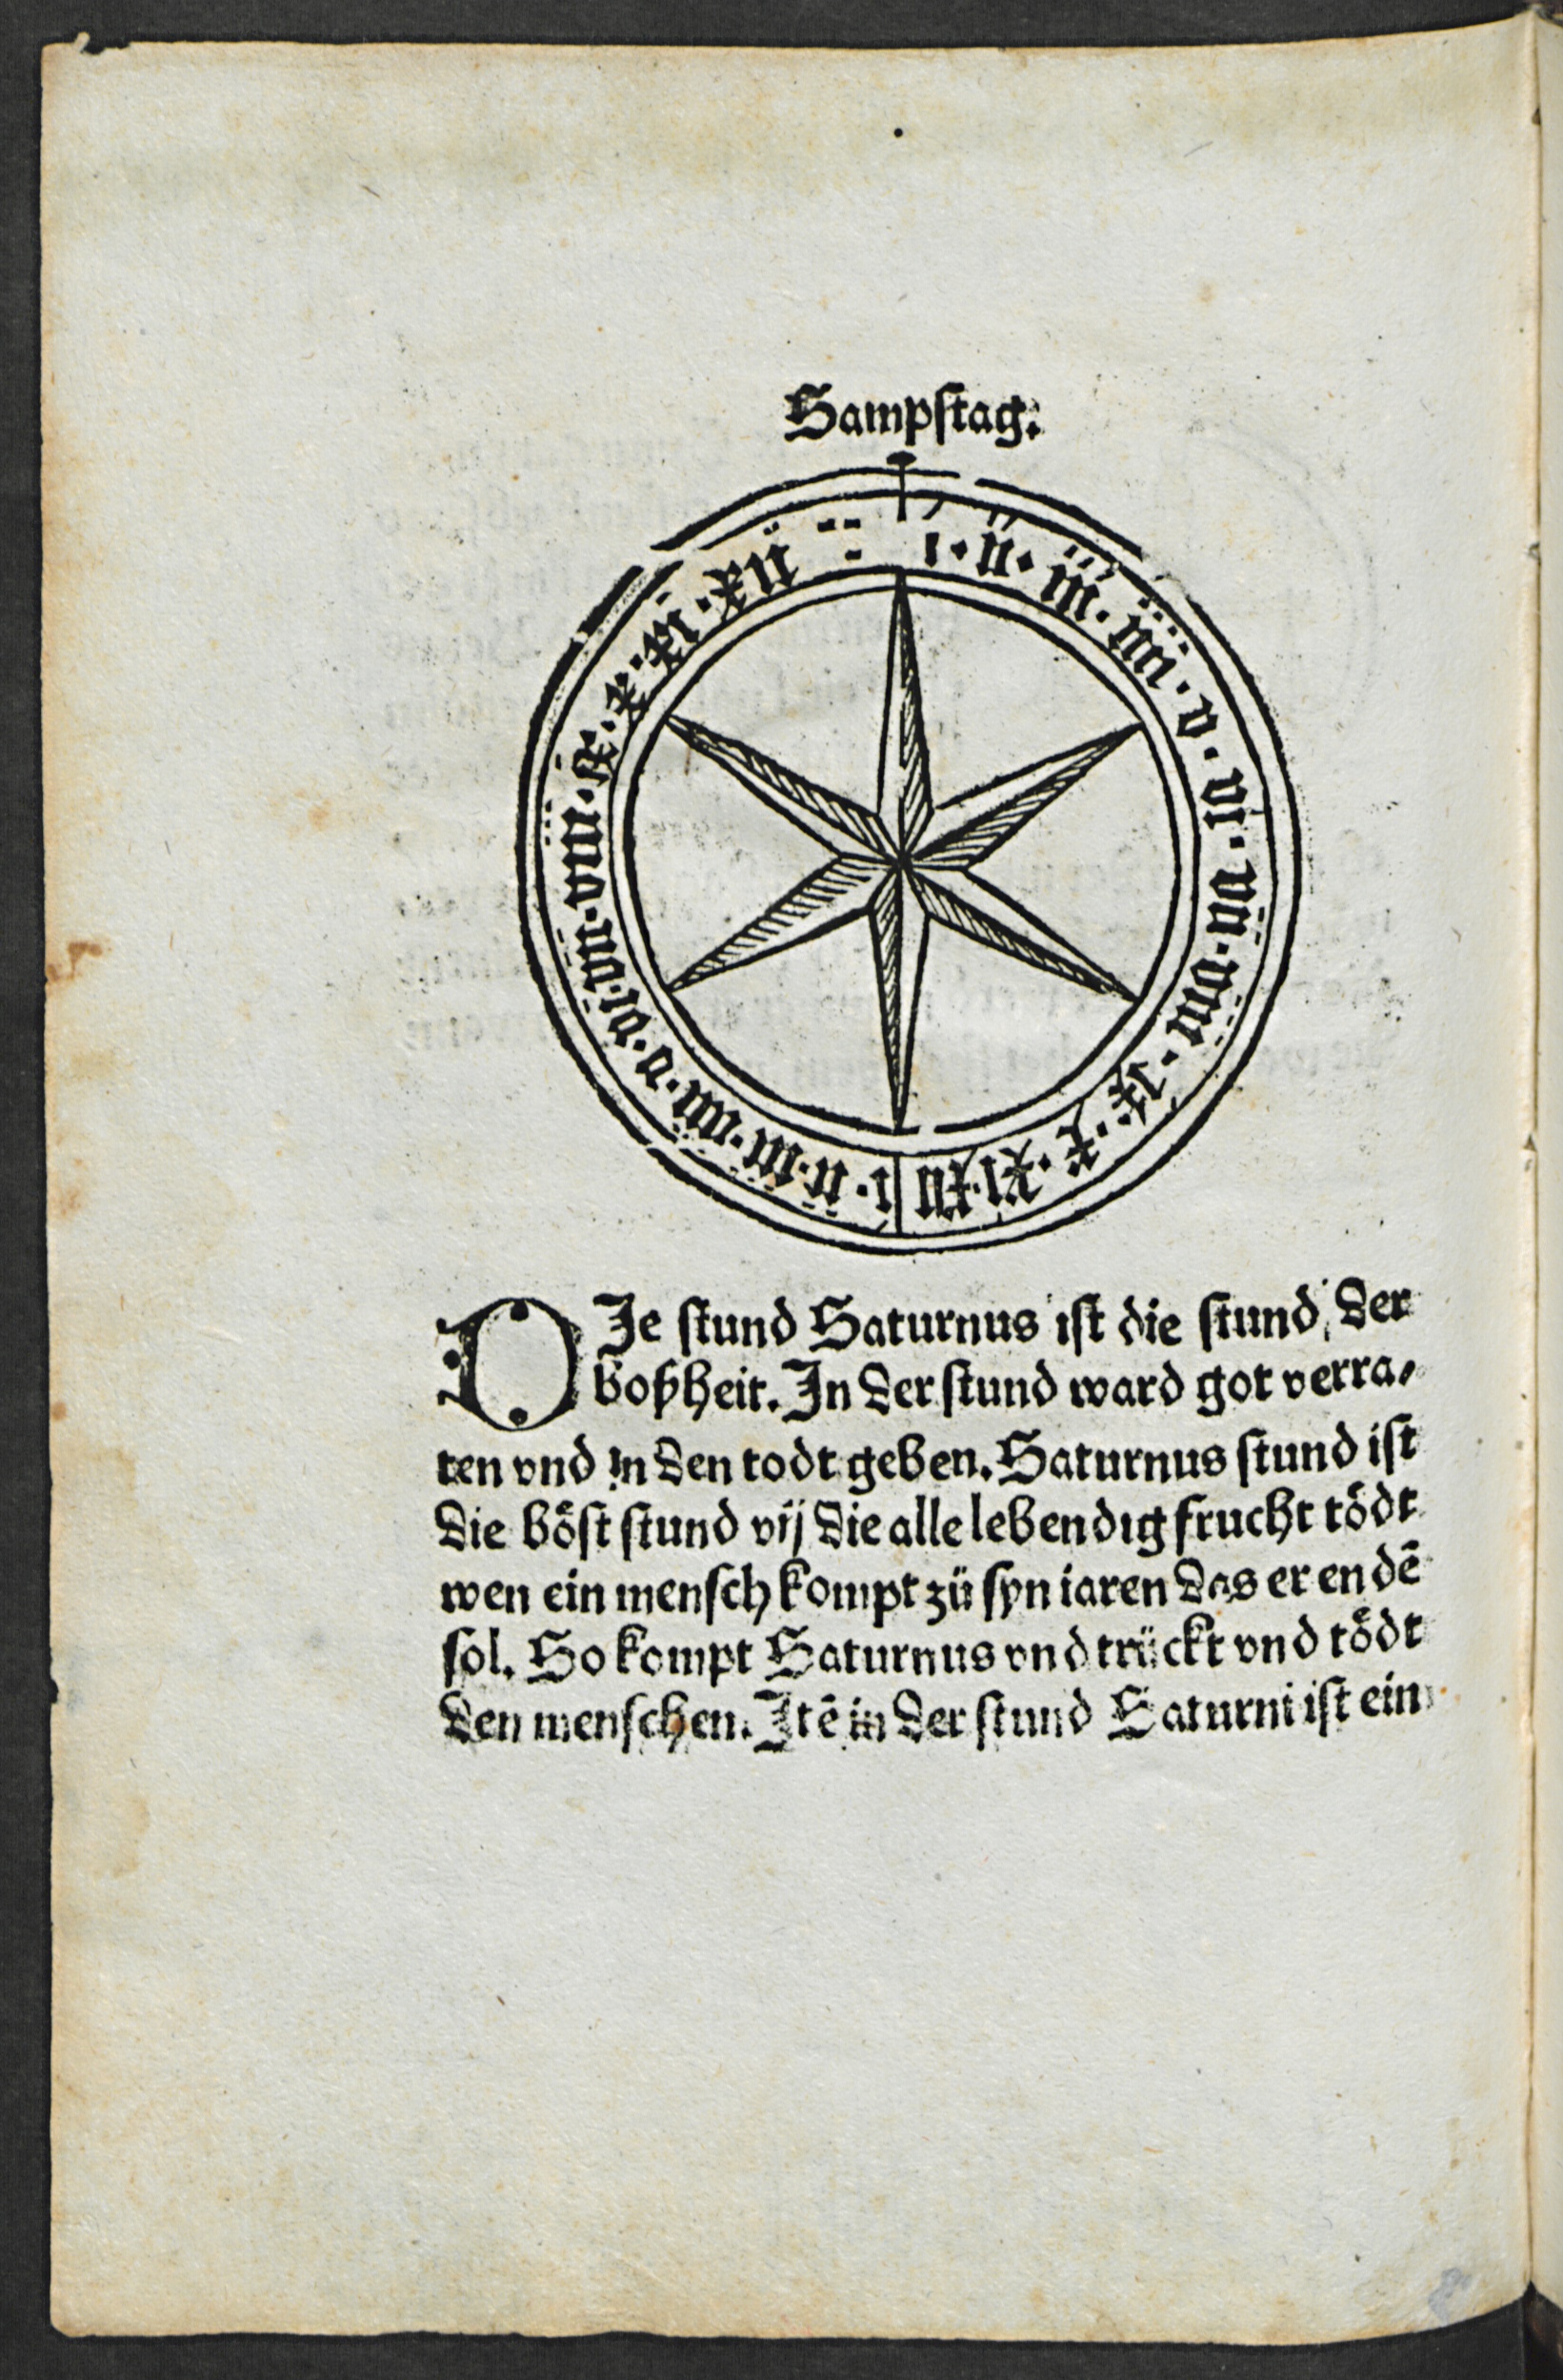 Sampstag.
i · ii · iii · iiii · v · vi · vii · viii · ix · x · xi · xii
i · ii · iii · iiii · v · vi · vii · viii · ix · x · xi · xii
DJe stund Saturnus ist die stund der
boßheit. Jn der stund ward got verra⸗
ten vnd in den todt geben. Saturnus stund ist
die böst stund vij die alle lebendig frucht tödt
wen ein mensch kompt zü syn iaren das er endē
sol. So kompt Saturnus vnd trückt vnd tödt
den menschen. Jtē in der stund Saturni ist ein